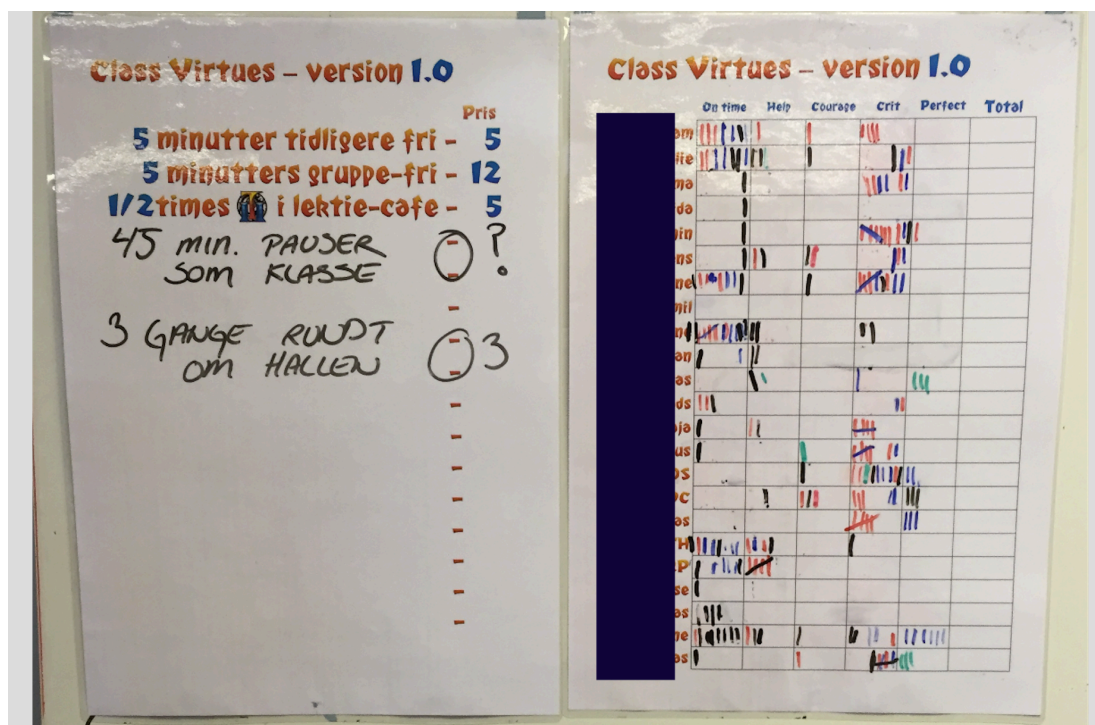 Class Virtues – version 1.0
Pris
5 minutter tidligere fri – 5
5 minutters gruppe-fri – 12
1/2 times i lektie-cafe – 5
45 MIN. PAUSER - ?
SOM KLASSE -
-
3 GANGE RUNDT - 3
OM HALLEN -
-
-
-
-
-
-
-
-
Class Virtues – version 1.0
On time Help Courage Crit Perfect Total
am
lie
ma
da
in
ns
ne
mil
an
as
ds
oja
us
OS
OC
as
P
se
as
ne
as